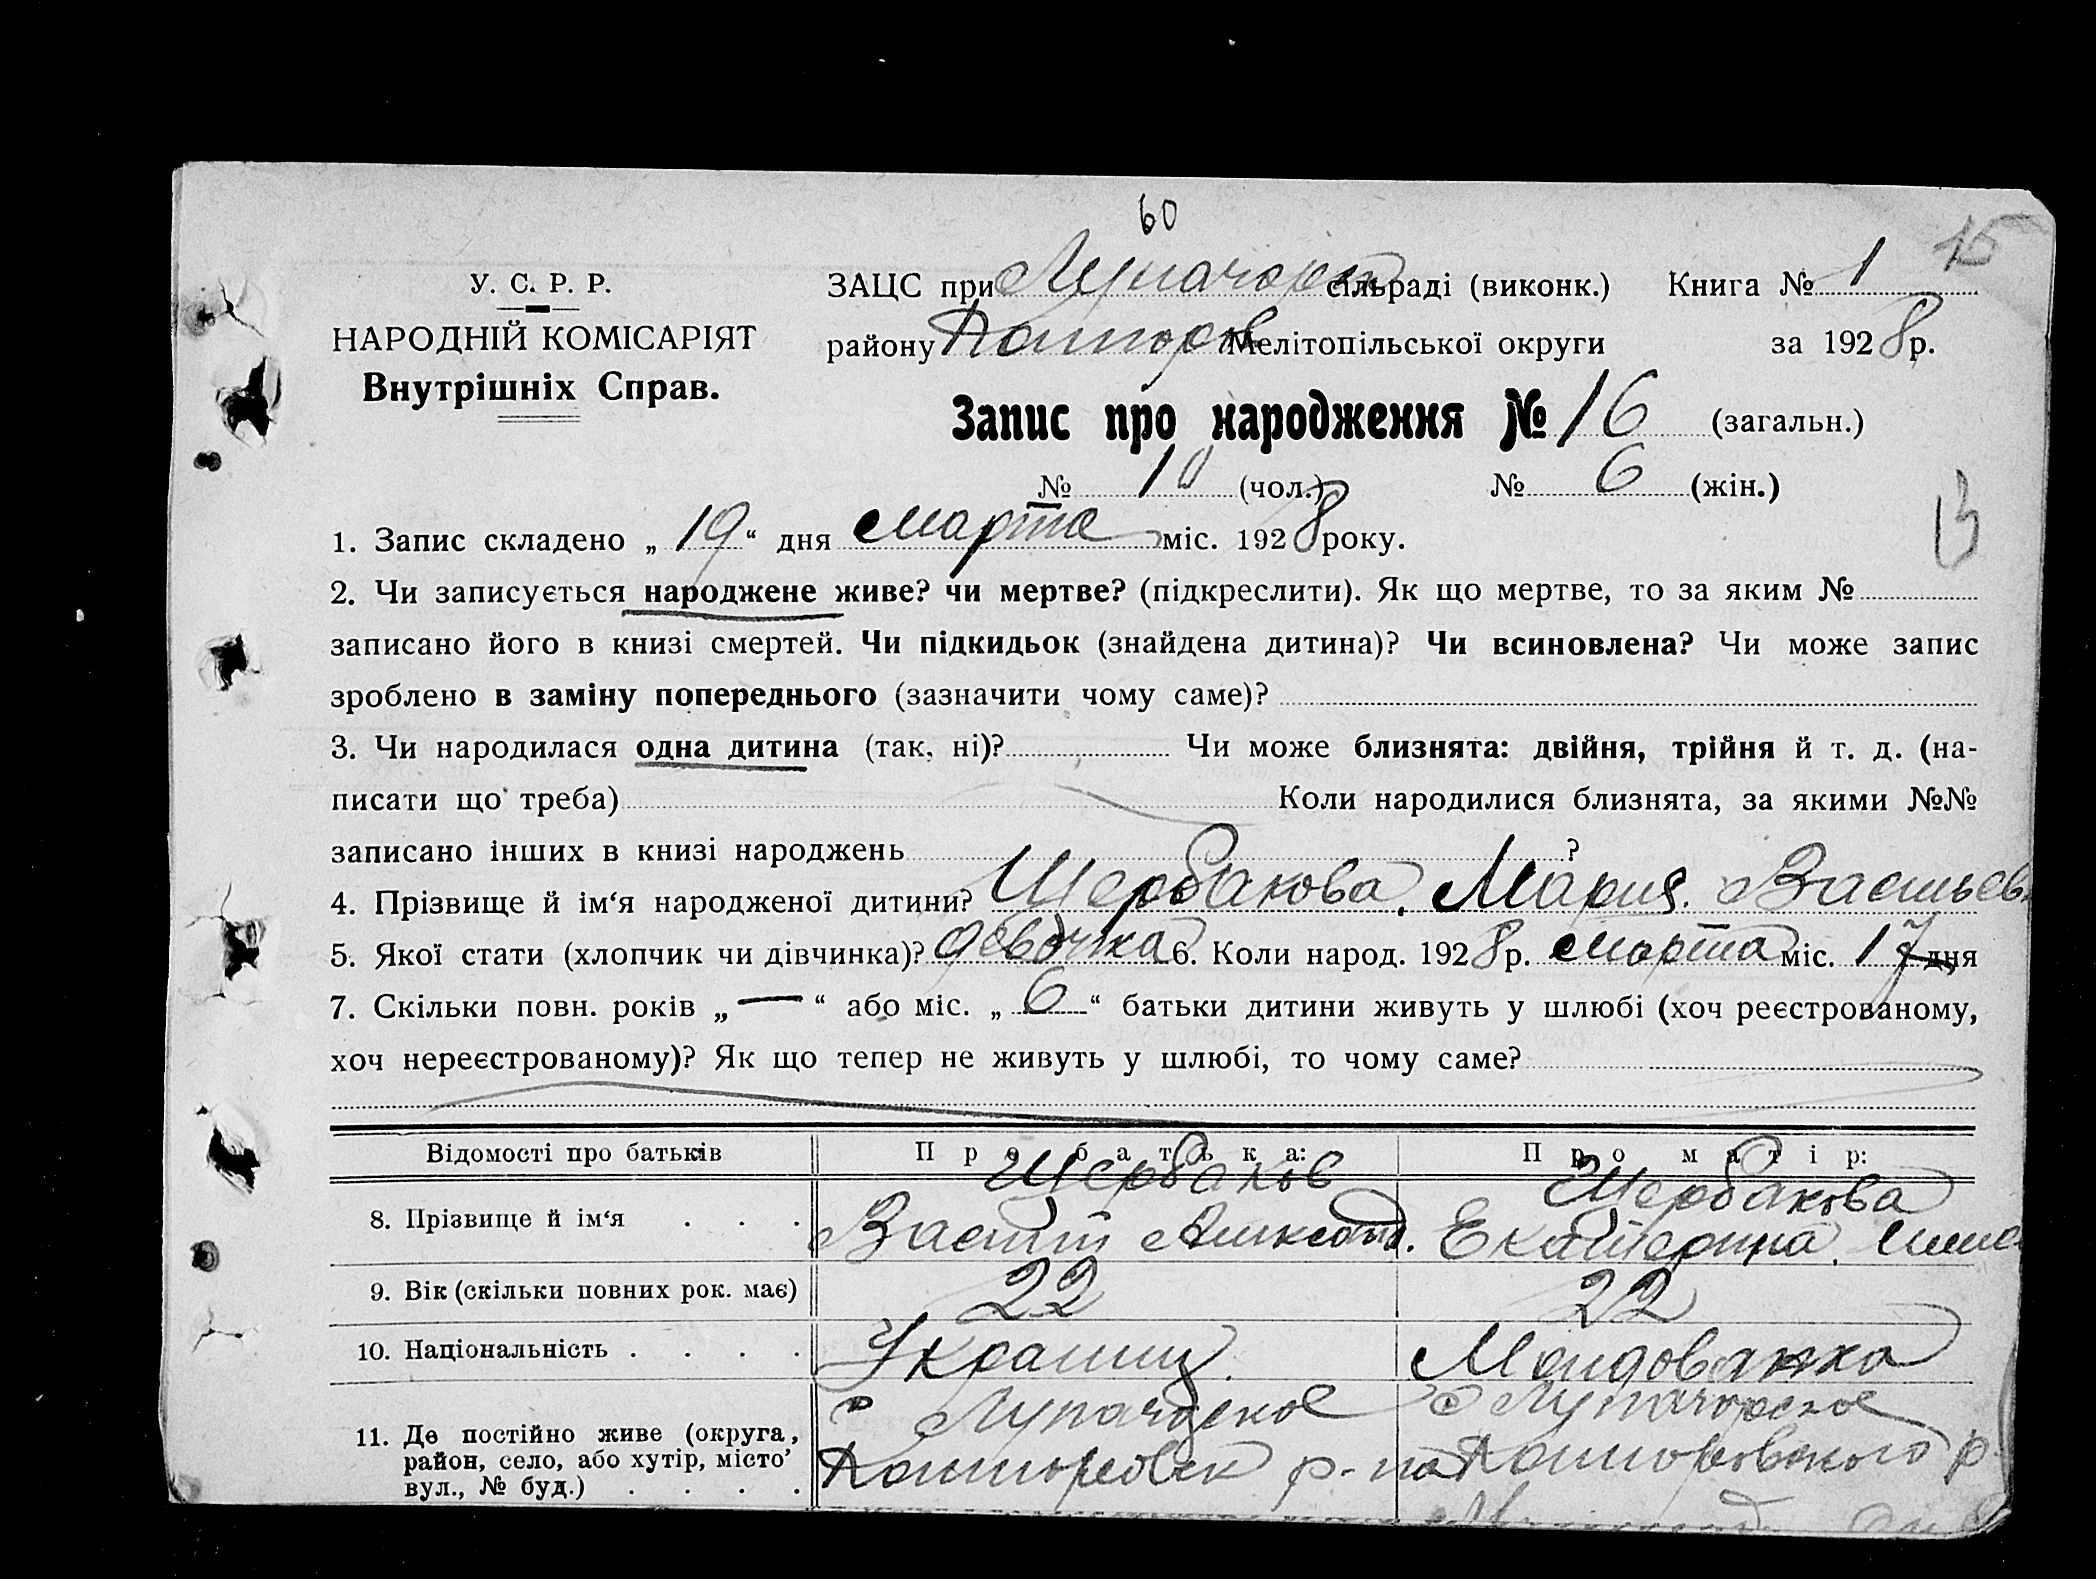 60
15
У. С. Р. Р.
НАРОДНІЙ КОМІСАРІЯТ
Внутрішніх Справ.
ЗАЦС при сільраді (виконк.) Книга № 1
району Мелітопільської округи за 1928 р.
Запис про народження № 16 (загальн.)
№ 10 (чол.) № 6 (жін.)
1. Запис складено „ 19 “ дня марта міс. 1928 року.
2. Чи записується народжене живе? чи мертве? (підкреслити). Як що мертве, то за яким №
записано його в книзі смертей. Чи підкидьок (знайдена дитина)? Чи всиновлена? Чи може запис
зроблено в заміну попереднього (зазначити чому саме)?
3. Чи народилася одна дитина (так, ні)? Чи може близнята: двійня, трійня й т. д. (на-
писати що треба) Коли народилися близнята, за якими №№
записано інших в книзі народжень ?
4. Прізвище й ім‘я народженої дитини? Щербакова, Мария. Васильев
5. Якої стати (хлопчик чи дівчинка)? девочка 6. Коли народ. 1928 р. марта міс. 17 дня
7. Скільки повн. років „ — “ або міс. „ 6 “ батьки дитини живуть у шлюбі (хоч реєстрованому,
хоч нереєстрованому)? Як що тепер не живуть у шлюбі, то чому саме?
Відомості про батьків Про батька: Про матір:
Щербаков Щербакова
8. Прізвище й ім‘я . . . Екатерина
9. Вік (скільки повних рок. має) 22 22
10. Національність . . . . Украинц.
11. Де постійно живе (округа,
район, село, або хутір, місто’
вул., № буд.) . . . .